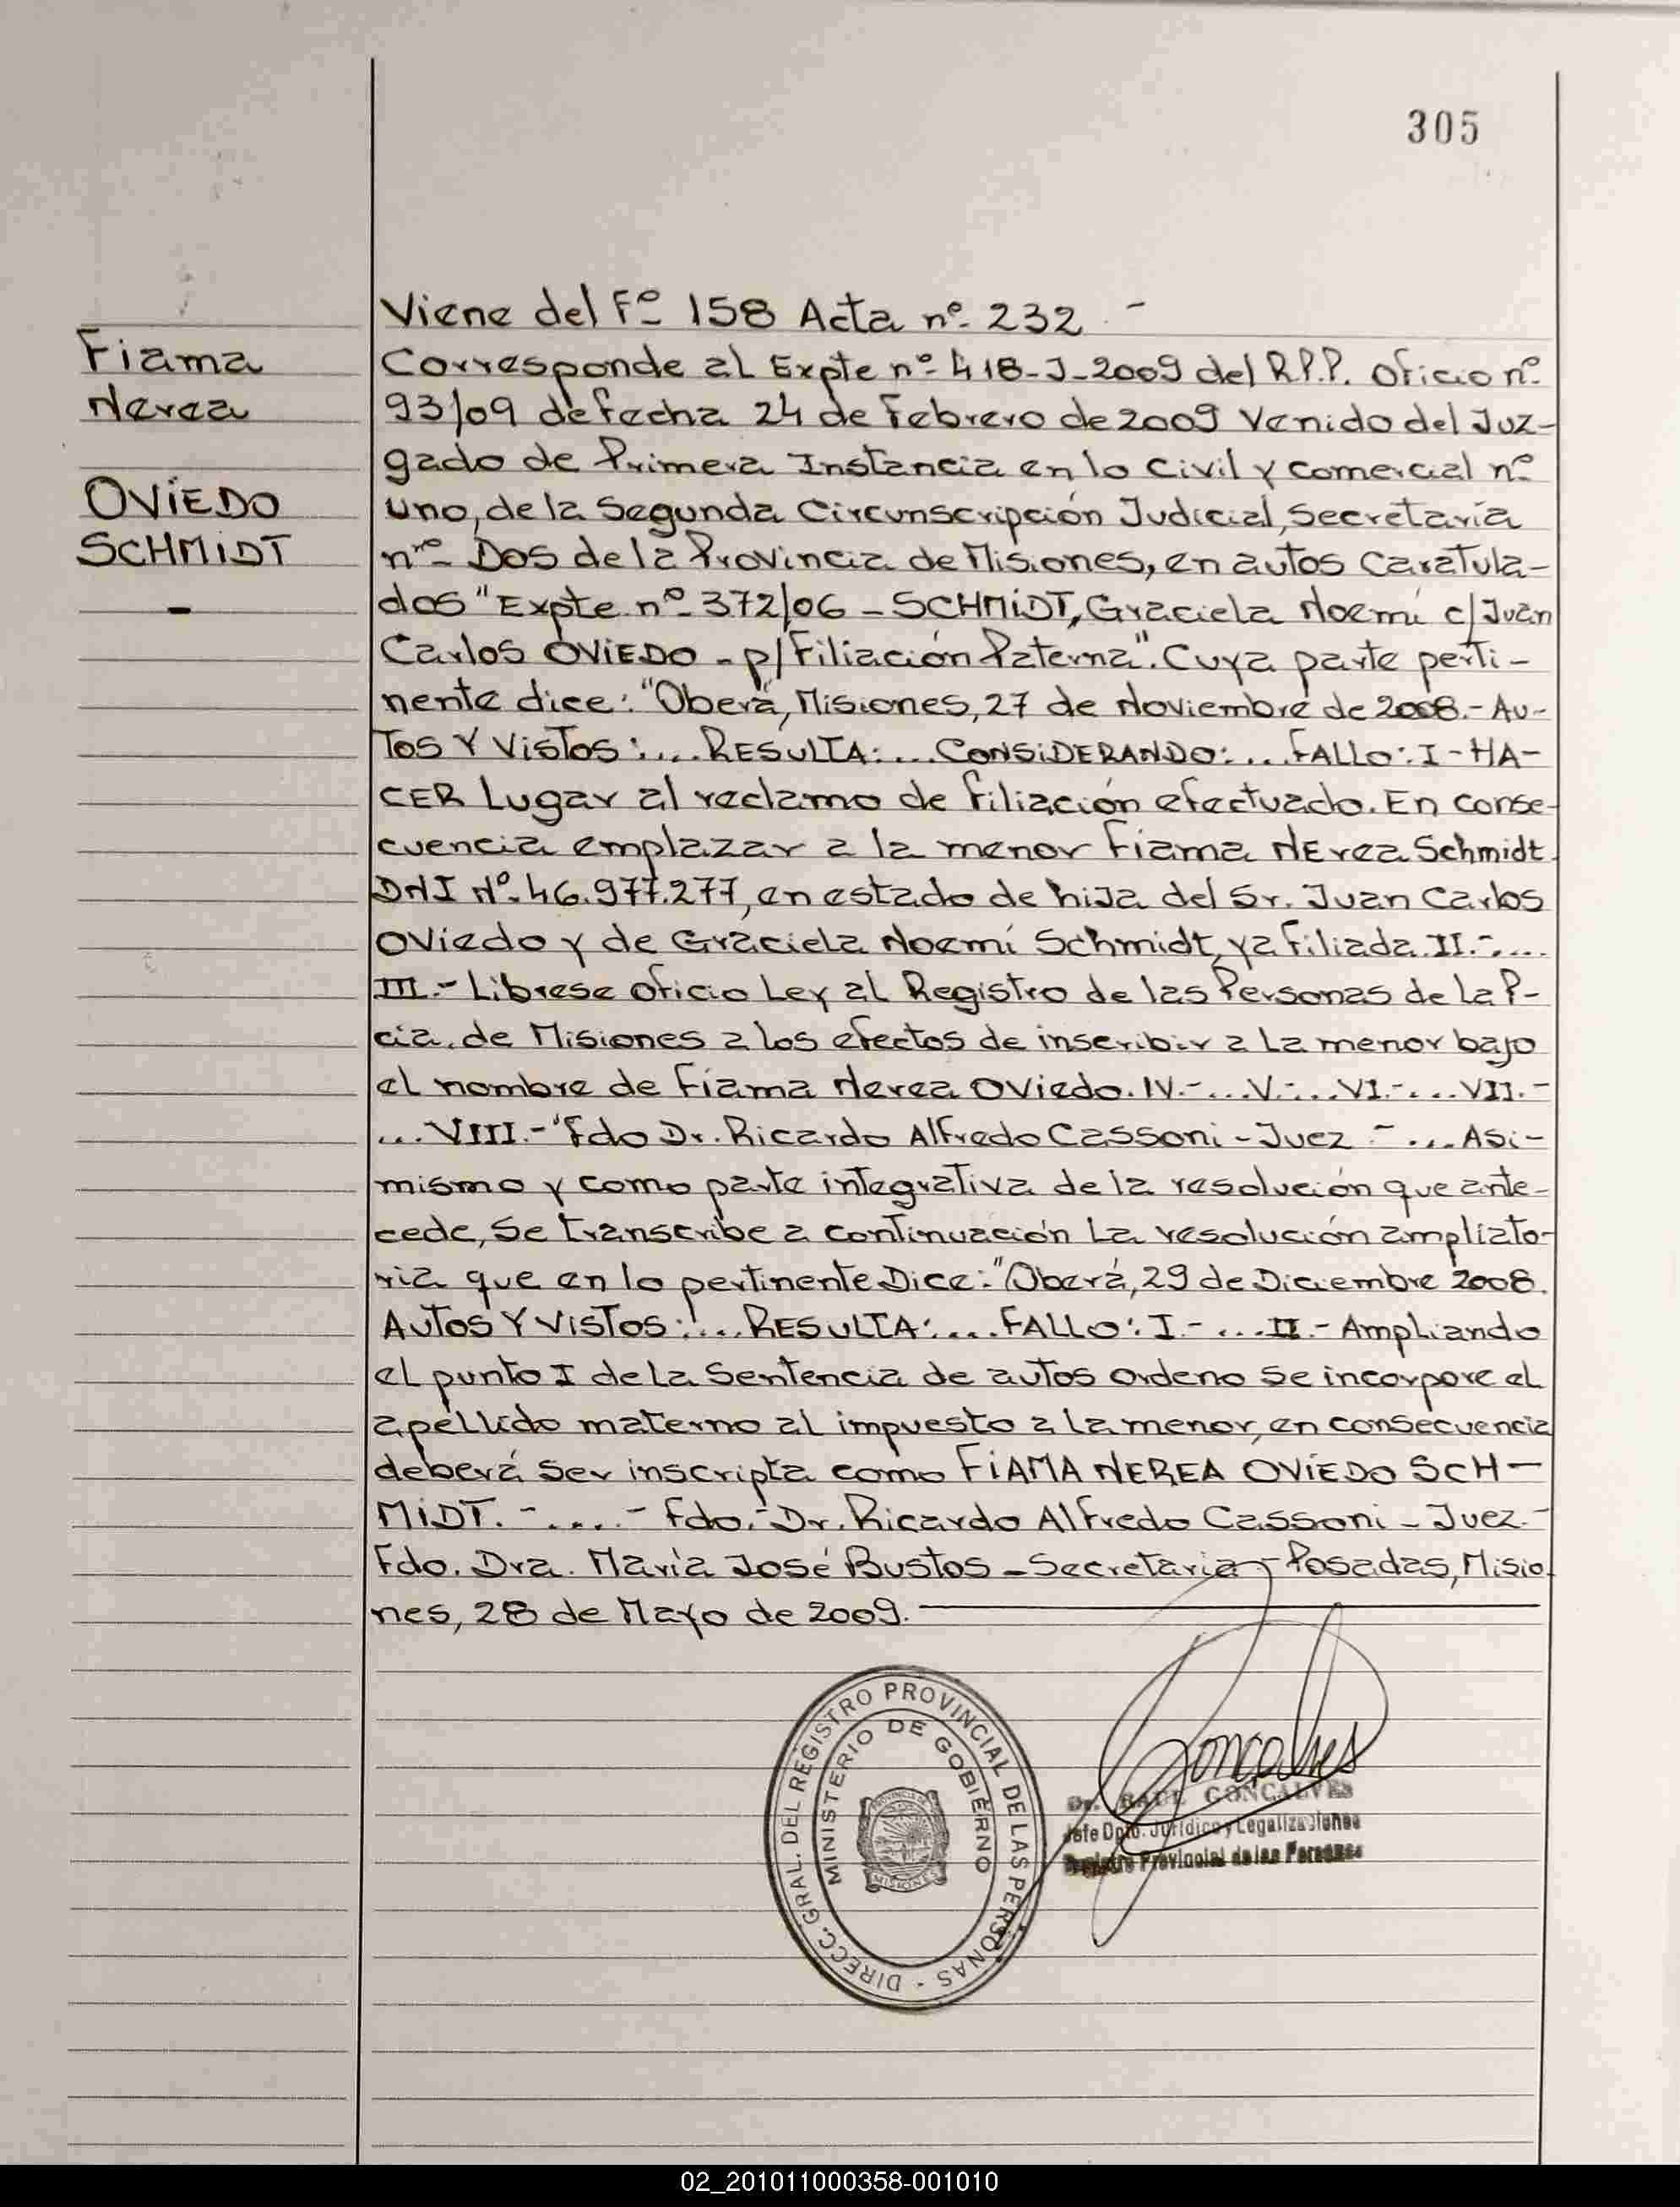 305
Viene del Fº 158 Acta nº 232 -
Fiama
Nerea
OVIEDO
SCHMIDT
-
Corresponde al Expte nº 418-J-2009 del R.P.P. Oficio nº
93/09 de fecha 24 de Febrero de 2009 Venido del Juz-
gado de Primera Instancia en lo Civil y Comercial nº
Uno, de la Segunda Circunscripción Judicial, Secretaría
nro Dos de la Provincia de Misiones, en autos Caratula-
dos "Expte nº 372/06 - SCHMIDT, Graciela Noemí c/Juan
Carlos OVIEDO - p/Filiación Paterna". Cuya parte perti-
nente dice: "Oberá, Misiones, 27 de Noviembre de 2008.- Au-
TOS Y VISTOS:.... RESULTA:.... CONSIDERANDO:... FALLO: I - HA-
CER Lugar al reclamo de filiación efectuado. En conse-
cuencia emplazar a la menor Fiama NErea Schmidt
DNI Nº 46.977.277, en estado de hija del Sr. Juan Carlos
Oviedo y de Graciela Noemí Schmidt, ya filiada. II.-....
III.- Librese Oficio Ley al Registro de las Personas de la P-
cia. de Misiones a los efectos de inscribir a la menor bajo
el nombre de Fiama Nerea Oviedo. IV.-...V.-...VI.-...VII.-
...VIII.- Fdo Dr. Ricardo Alfredo Cassoni - Juez.-... Asi-
mismo y como parte integrativa de la resolución que ante-
cede, Se transcribe a continuación La resolución ampliato-
ria que en lo pertinente Dice: "Oberá, 29 de Diciembre 2008.
AUTOS Y VISTOS:... RESULTA:.... FALLO: I.-... II.- Ampliando
el punto I de la Sentencia de autos Ordeno se incorpore el
apellido materno al impuesto a la menor, en consecuencia
deberá ser inscripta como FIAMA NEREA OVIEDO SCH-
MIDT.-....- Fdo.- Dr. Ricardo Alfredo Cassoni - Juez.-
Fdo. Dra. María José Bustos - Secretaria - Posadas, Misio
nes, 28 de Mayo de 2009.
DIRECC. GRAL. DEL REGISTRO PROVINCIAL DE LAS PERSONAS -
MINISTERIO DE GOBIERNO
PROVINCIA DE
MISIONES
Goncalves
Dr. RAUL GONCALVES
Jefe Dpto. Jurídico y Legalizaciones
Registro Provincial de las Personas
02_201011000358-001010